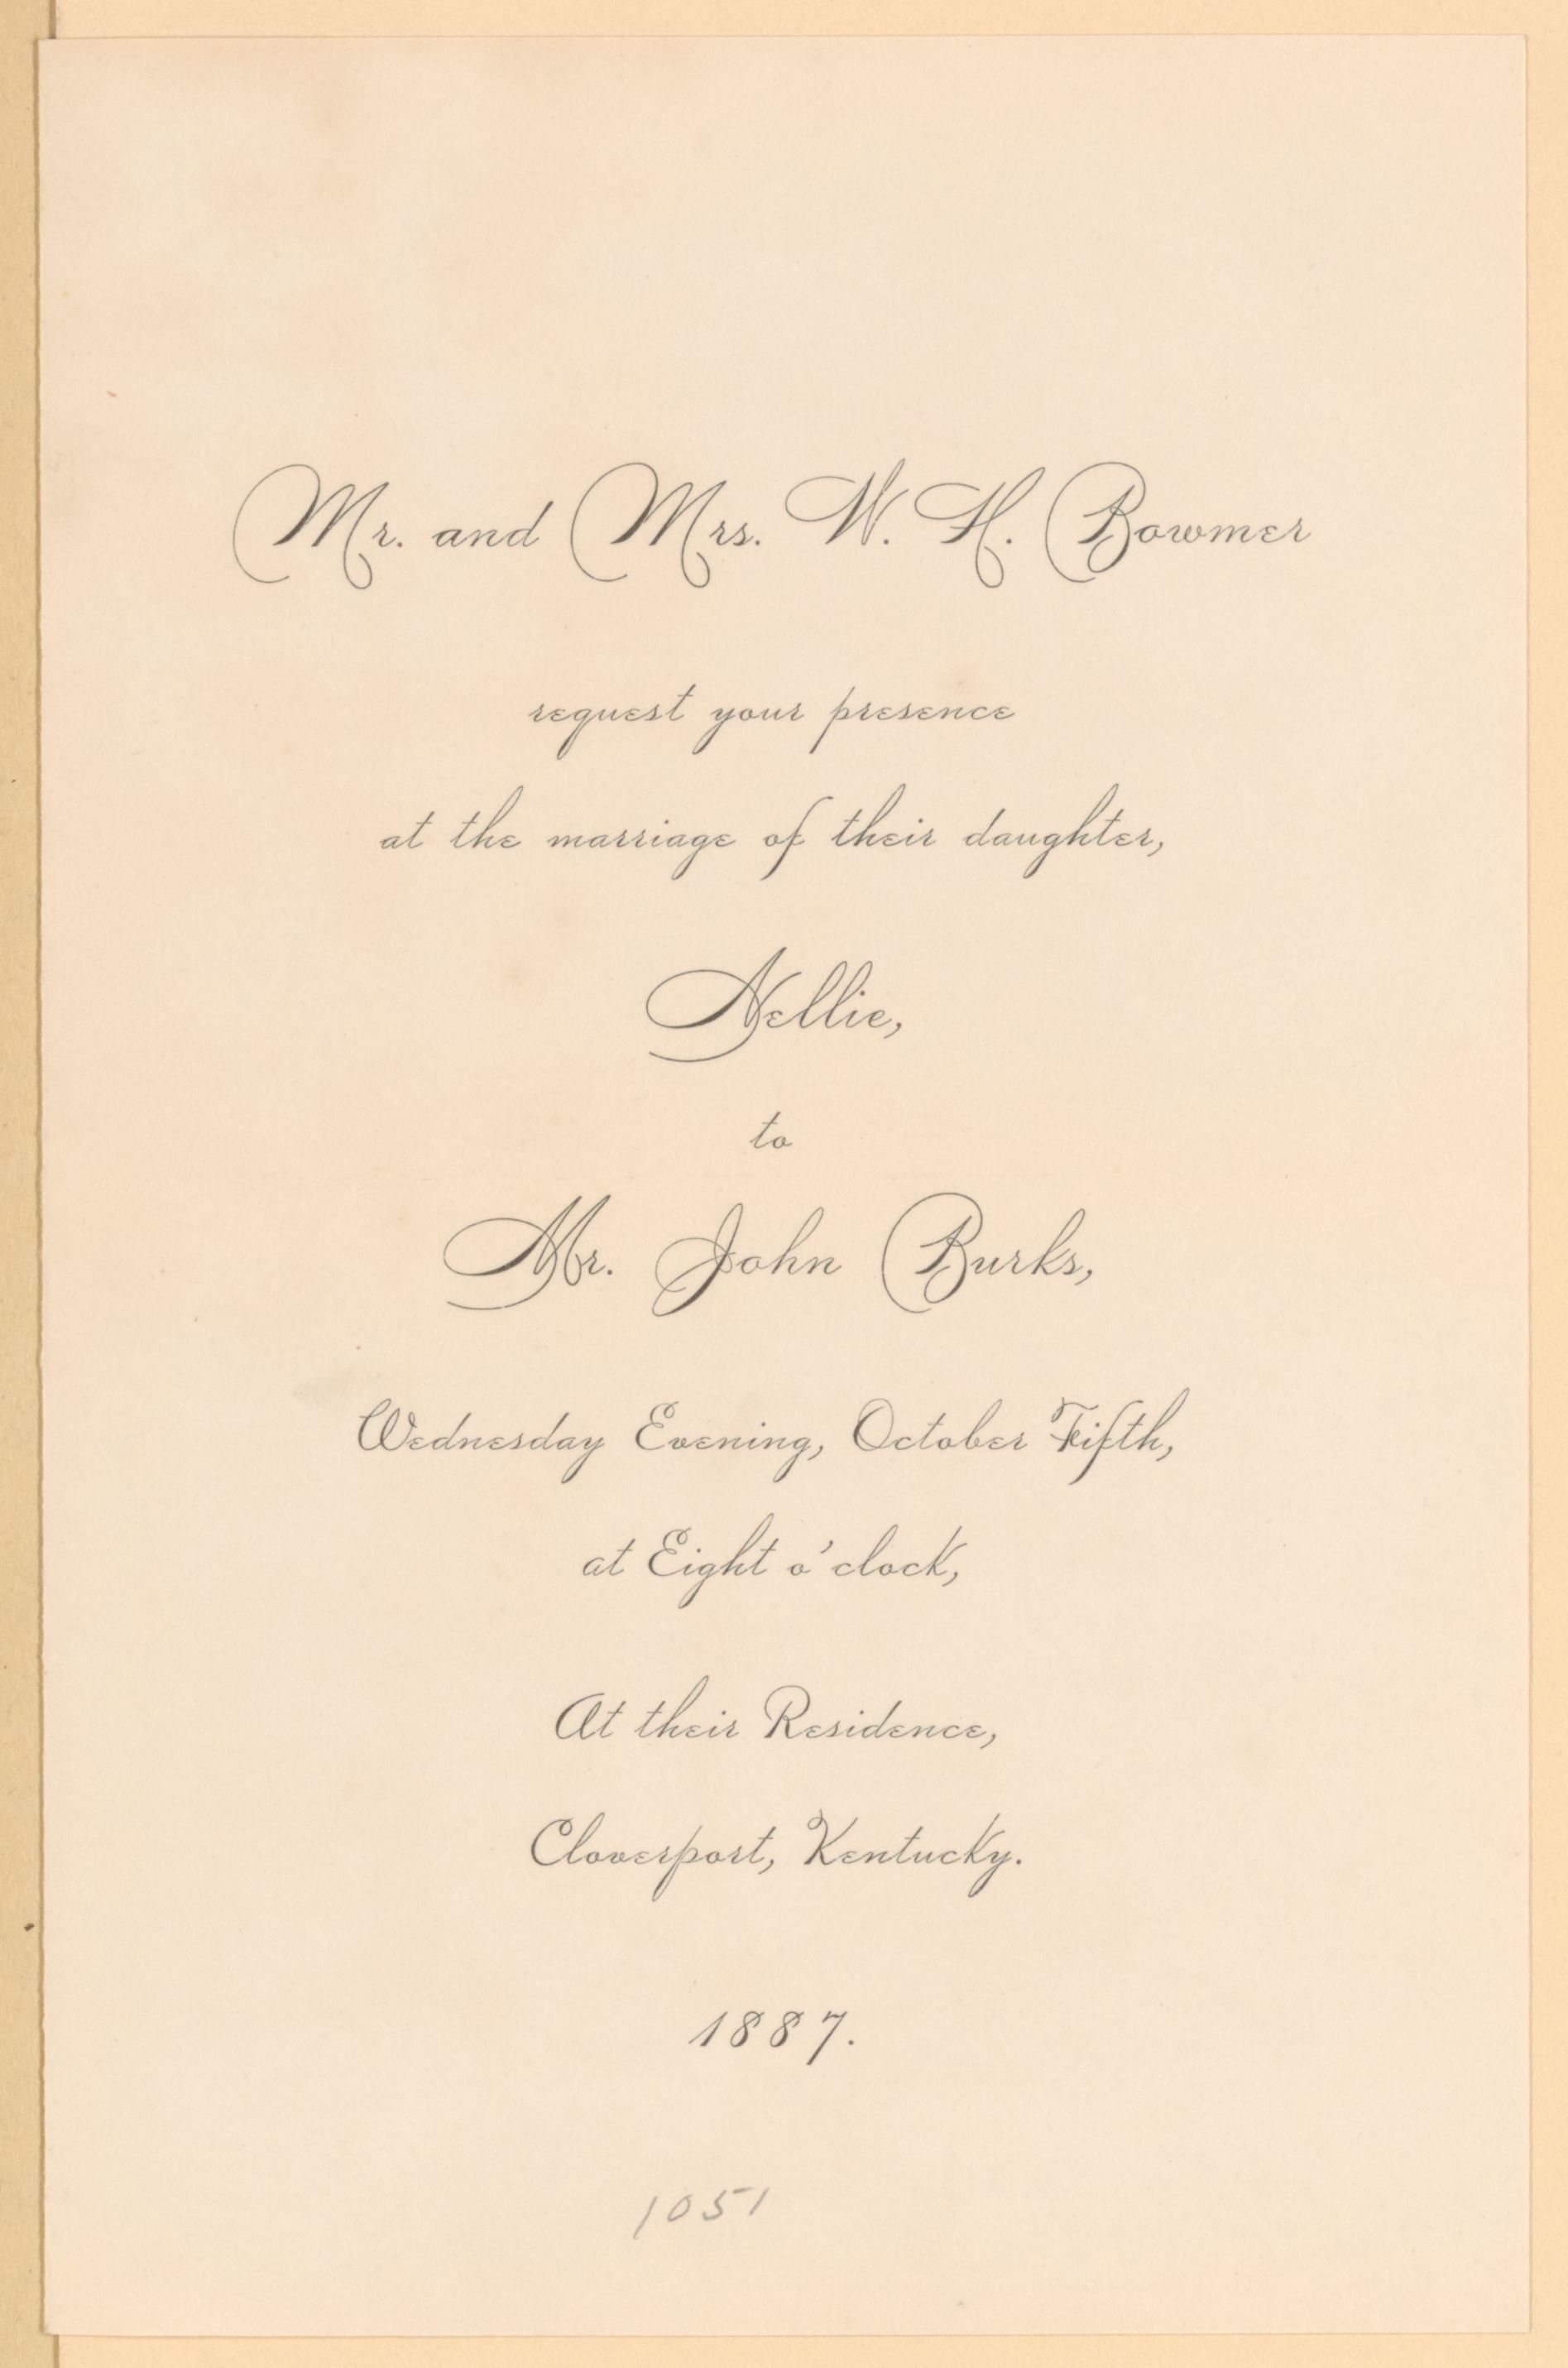 Mr. and Mrs. W. H. Bowmer
request your presence
at the marriage of their daughter,
Nellie,
to
Mr. John Burks,
Wednesday Evening, October Fifth,
at Eight o'clock,
At their Residence,
Cloverport, Kentucky.
1887.
1051